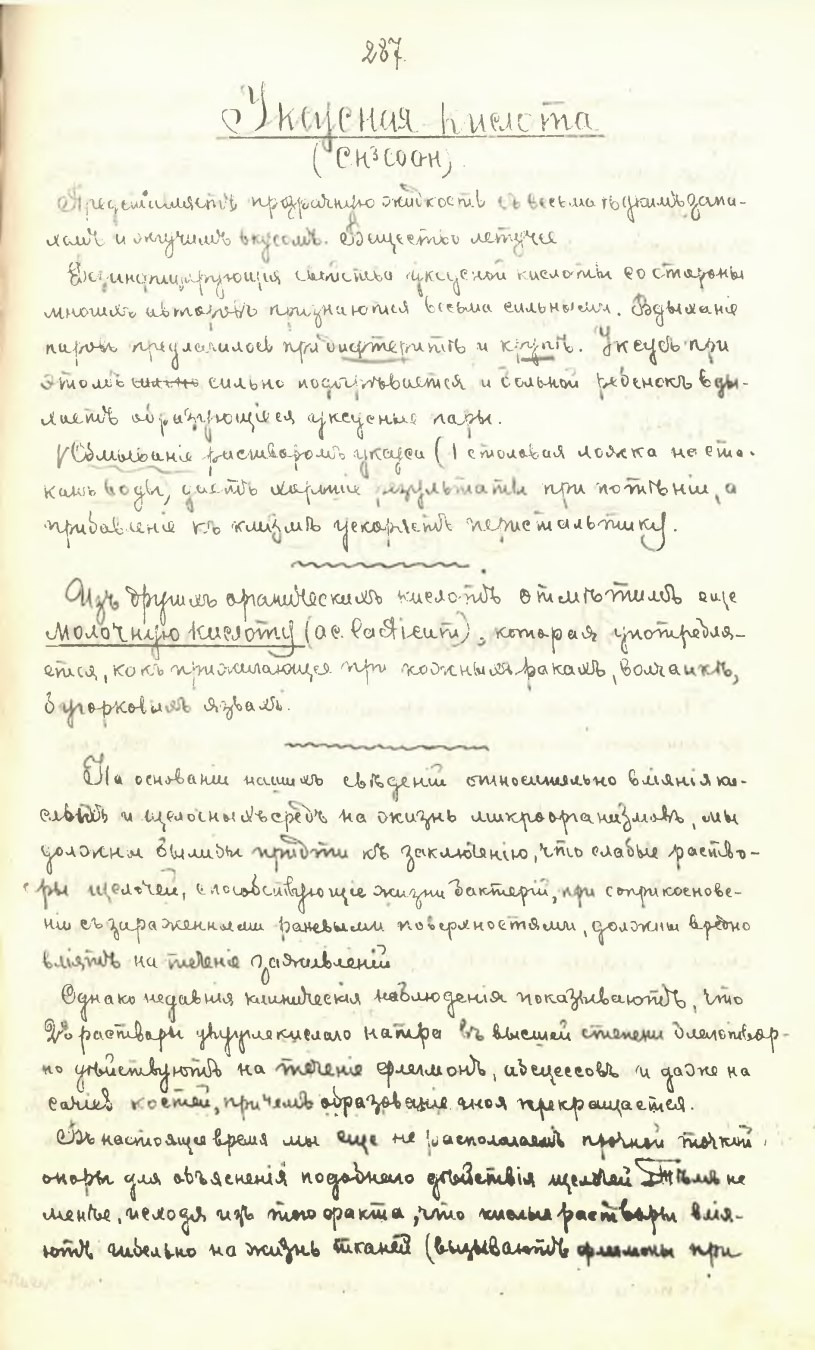 287.
Уксусная кислота
(CH³COOH).
Представляетъ прозрачную жидкость съ весьма ѣдкимъ запа-
хомъ и жгучимъ вкусомъ. Вещество летучее
Дезинфицирующія свойства уксусной кислоты со стороны
многихъ авторовъ признаются весьма сильными. Вдыханіе
паровъ предлагалось при дифтеритѣ и крупѣ. Уксусъ при
этомъ сильно сильно подогрѣвается и больной ребенокъ вды-
хаетъ образующіеся уксусные пары.
Обмываніе растворомъ уксуса (1 столовая ложка на ста-
канъ воды) даетъ хорошіе результаты при потѣніи, а
прибавленіе къ клизмѣ ускоряетъ перистальтику.
Изъ другихъ органическихъ кислотъ отмѣтимъ еще
молочную кислоту (ac. lacticum), которая употребля-
ется, какъ прижигающее при кожныхъ ракахъ, волчанкѣ,
бугорковыхъ язвахъ.
На основаніи нашихъ свѣденій относительно вліянія ки-
слыхъ и щелочныхъ средъ на жизнь микроорганизмовъ, мы
должны были бы придти къ заключенію, что слабые раство-
ры щелочей, способствующіе жизни бактерій, при соприкоснове-
ніи съ зараженными раневыми поверхностями, должны вредно
вліять на теченіе заживленій
Однако недавнія клиническія наблюденія показываютъ, что
2% растворы двууглекислаго натра въ высшей степени благотвор-
но дѣйствуютъ на теченіе флегмонъ, абсцессовъ и даже на
костей, причемъ образованіе гноя прекращается.
Въ настоящее время мы еще не располагаемъ прочной точкой
опоры для объясненія подобнаго дѣйствія щелочей Тѣмъ не
менѣе, исходя изъ того факта, что кислые растворы влія-
ютъ гибельно на жизнь тканей (вызываютъ флегмоны при